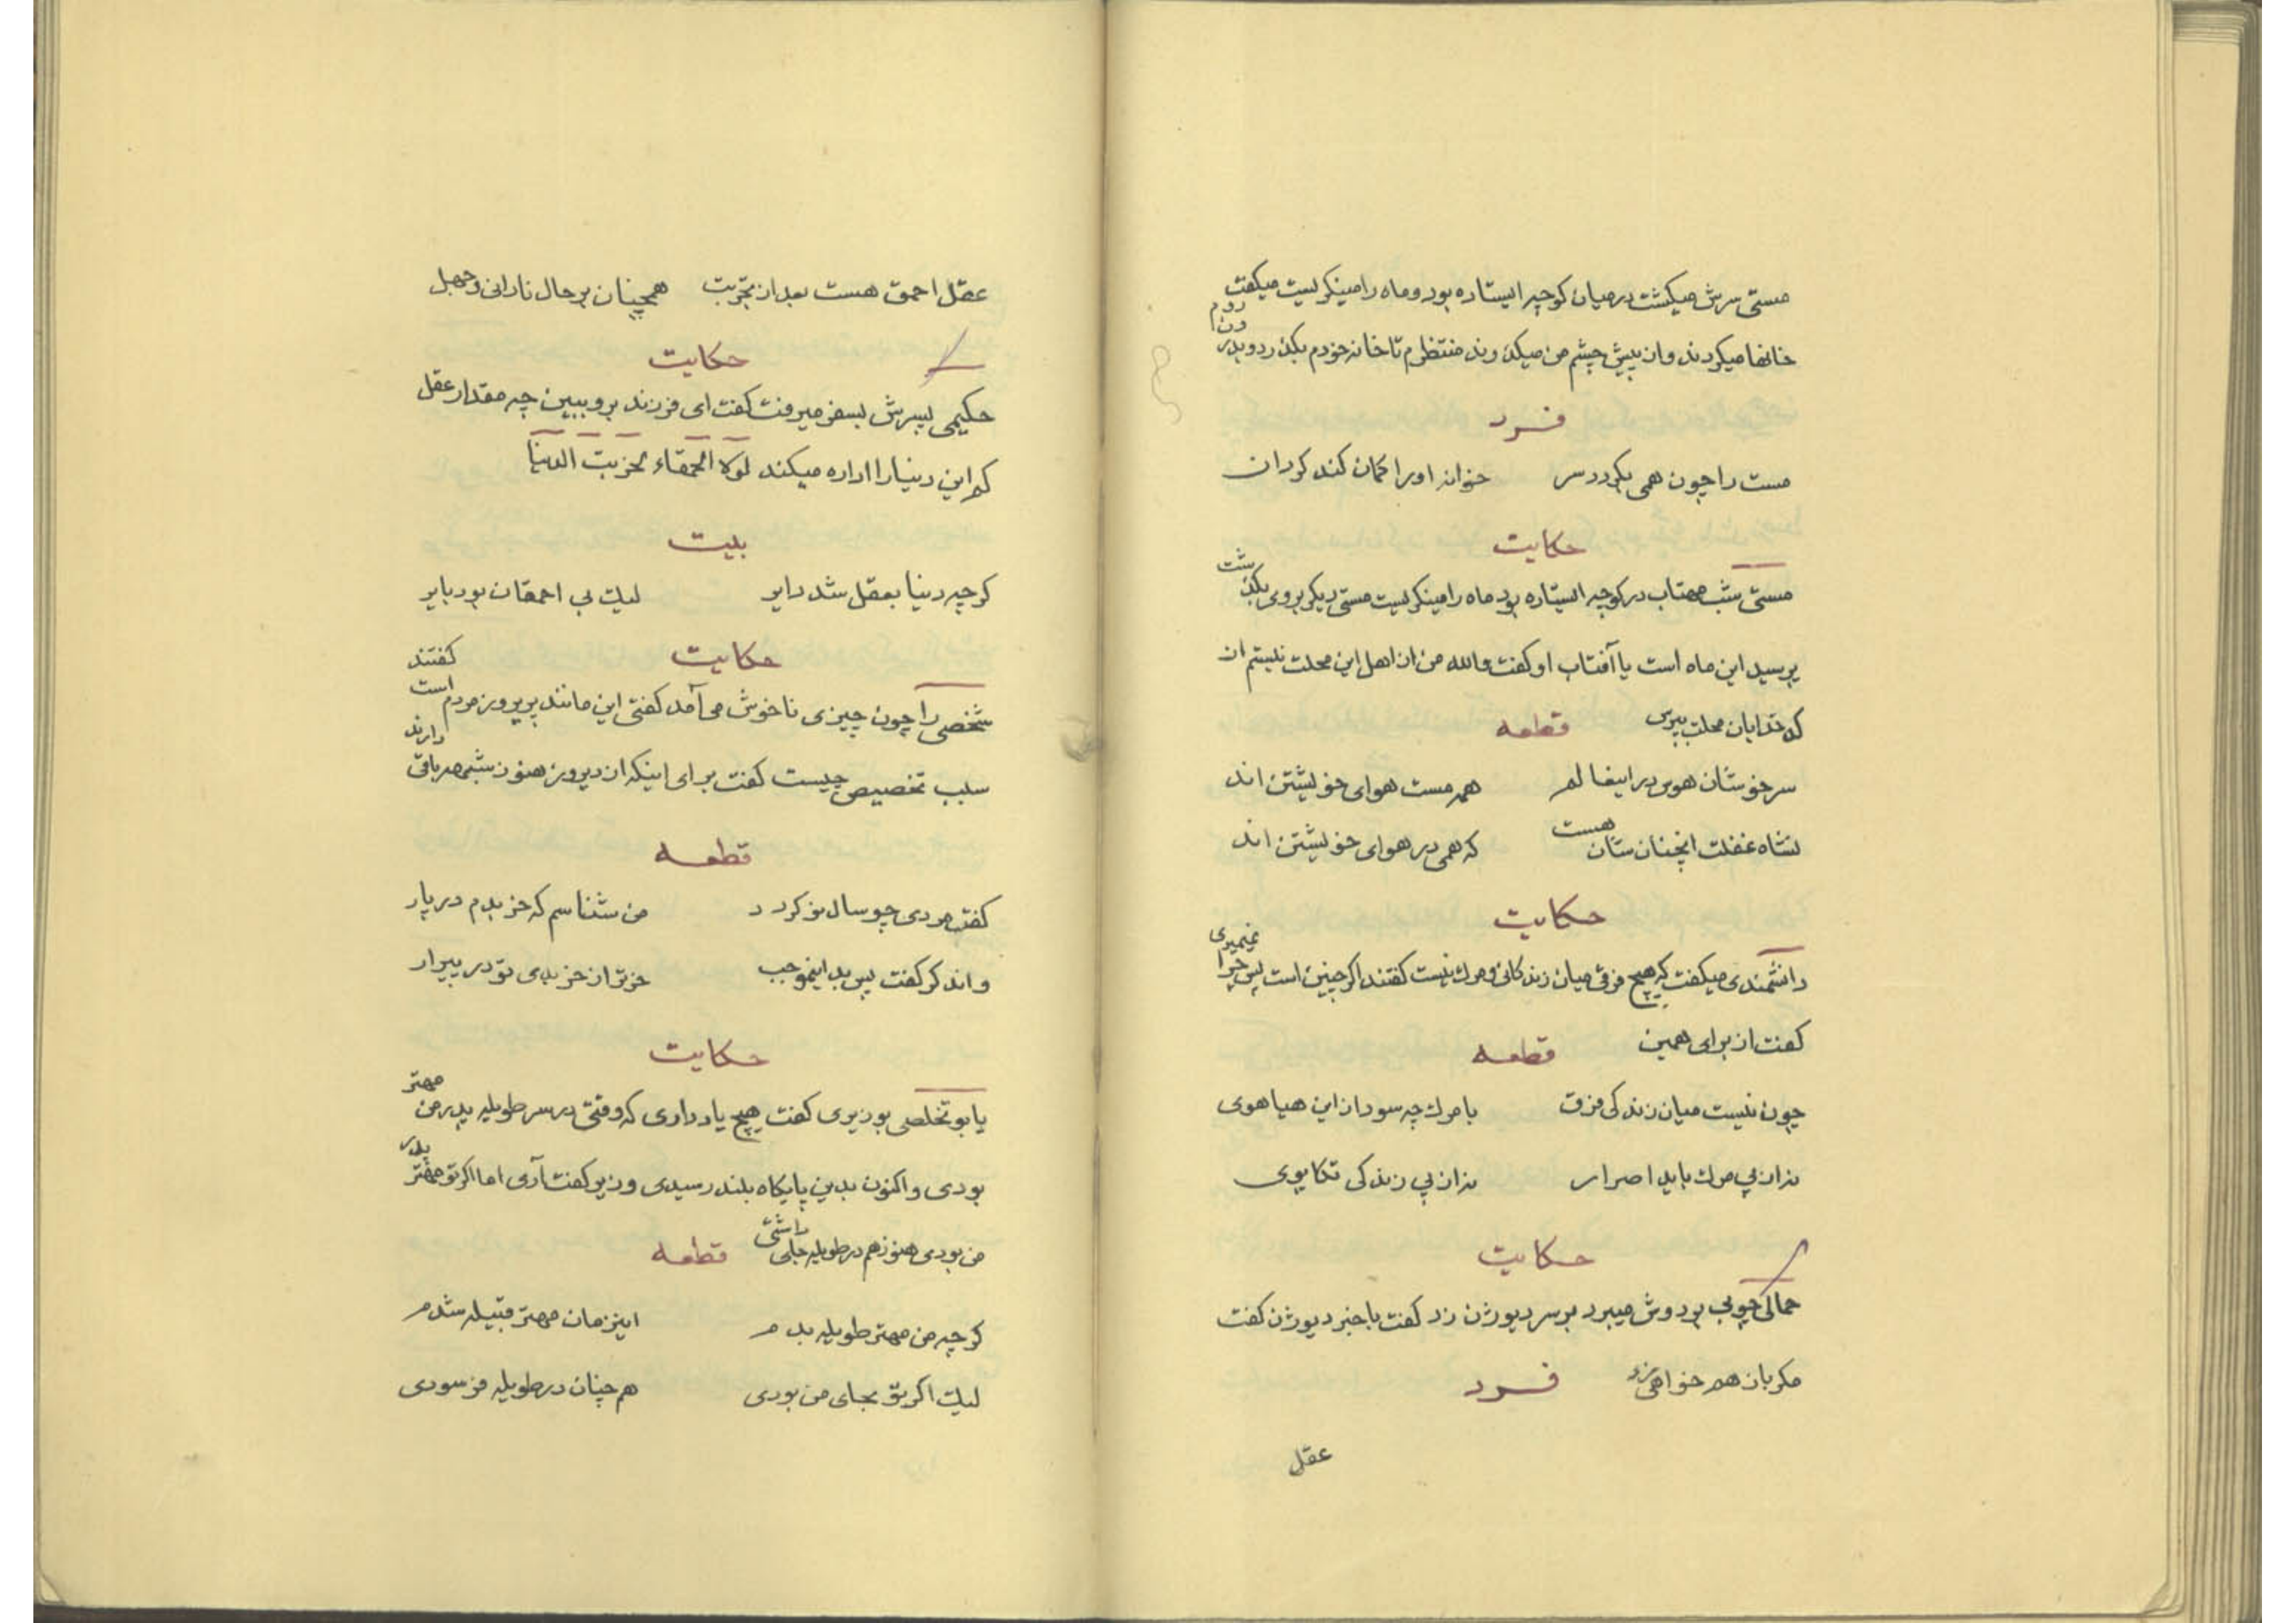 مستی سرش میکشت در میان کوچه ایستاده بود و ماه را مینکریست میکفت
خانها میکردند و از پیش چشم من میکذروند منتظرم تا خانه خودم بکذرد و بدرون روم
فرد
مست را چون همی بکردد سر خوانه او را کمان کند کردان
حکایت
مستی شب مهتاب در کوچه ایستاده بود ماه را مینکریست مستی دیکر بروی بکذشت
پرسید این ماه است یا آفتاب او کفت والله من از اهل این محلت نیستم از
کدخدایان محلت بپرس قطعه
سرخوشان هوس در این عالم همه مست هوای خویشتن اند
نشاه غفلت انچنان ستان هست که همی در هوای خویشتن اند
حکایت
دانشمندی میکفت که هیچ فرقی میان زندکانی و مرک نیست کفتند اکر چنین است پس چرا نمیمیری
کفت از برای همین قطعه
چون نیست میان زندکی فرق با مرک چه سود از این هیاهوی
نه از پی مرک باید اصرار نه از پی زندکی تکاپوی
حکایت
حمالی چوبی بر دوش میبرد بر سر دیوژن زد کفت باخبر دیوژن کفت
مکر باز هم خواهی زد فرد
عقل
عقل احمق هست بعد از تجربت همچنان بر حال نادانی و جهل
حکایت
حکیمی پسرش بسفر میرفت کفت ای فرزند برو ببین چه مقدار عقل
که این دنیا را اداره میکند لولا الحمقاء لخربت الدنیا
بیت
کرچه دنیا بعقل شد دایر لیک بی احمقان بود بایر
حکایت
شخصی را چون چیزی ناخوش می آمد کفتی این مانند پریروز مردم است کفتند
سبب تخصیص چیست کفت برای اینکه از دیروز هنوز شبی باقی دارند
قطعه
کفت مردی چو سال نو کردد من شناسم که خر بدم در پار
واند کر کفت پس بدینموجب خرتر از خر بدی تو در پیرار
حکایت
یابو تخلصی بوزیری کفت هیچ یاد داری که وقتی در سر طویله پدر من مهتر
بودی و اکنون بدین پایکاه بلند رسیدی وزیر کفت آری اما اکر تو مهتر پدر
من بودی هنوز هم در طویله جای داشتی قطعه
کرچه من مهتر طویله بدم اینزمان مهتر قبیله شدم
لیک اکر تو بجای من بودی هم چنان در طویله فرسودی